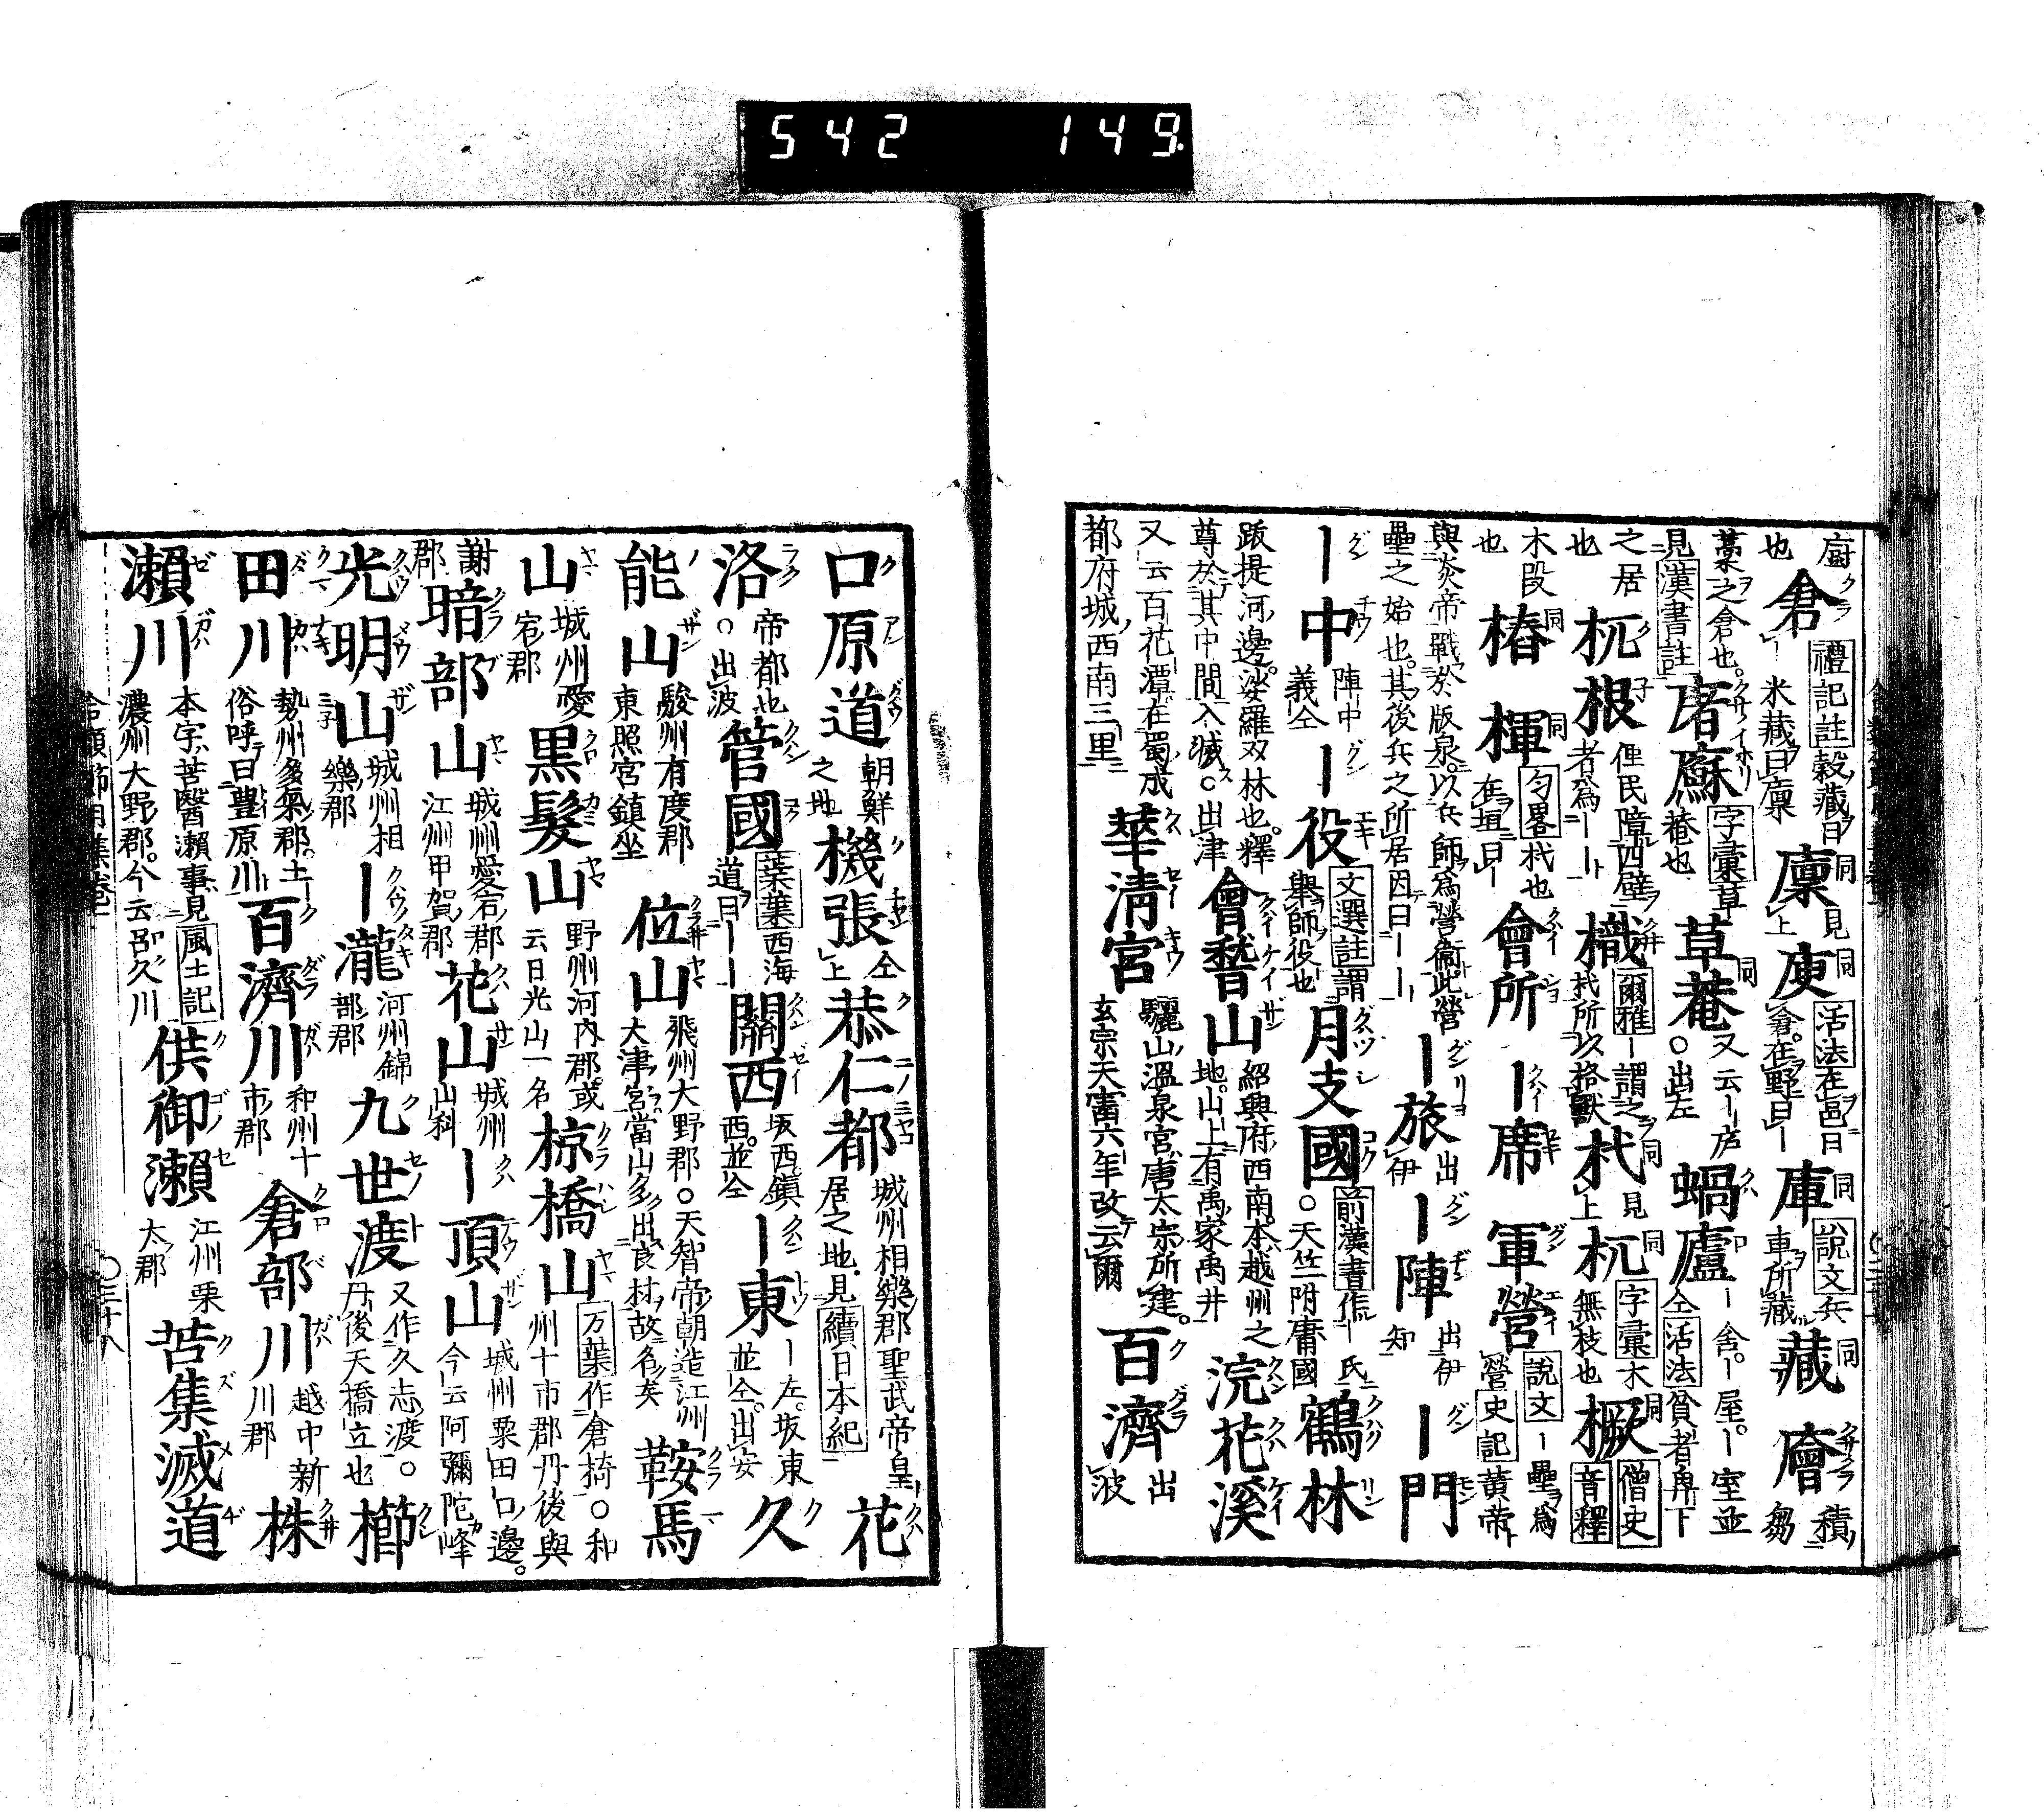 542 149.
廚也 倉 禮記註穀藏曰ー米藏曰廩 廩 見上 庾 活法在邑曰倉。在野曰ー 庫 說文兵車所藏 藏 廥 積芻
藁之倉也。見漢書註 㡯廜 字彙草菴也 草菴 又云ー庐○出左 蝸廬 ー舍。ー屋。ー室並仝活法貧者舟下
之居也 杌根 俚民障西壁者爲ーー 樴 爾雅ー謂之杙所以格獸 杙 見上 杌 字彙木無枝也 橛 僧史音釋
木段也 樁 楎 匀畧杙也在垣曰ー 會所 ー席 軍營 說文ー壘爲營史記黃帝
與炎帝戰於版泉。以兵師爲營衞。此營壘之始也。其後兵之所居因曰ーー ー旅 出伊 ー陣 出伊知 ー門
ー中 陣中義仝 ー役 文選註謂舉師役也 月支國 前漢書作ー氏○天竺附庸國 鶴林
跋提河邊。娑羅双林也。釋尊於其中間入滅。○出津 會稽山 紹興府西南。本越州之地。山上有禹家禹井 浣花溪
又云百花潭在蜀成都府城西南三里 華淸宮 驪山溫泉宮。唐太宗所建。玄宗天寳六年改云爾 百濟 出波
口原道 朝鮮之地 機張 仝上 恭仁都 城州相樂郡聖武帝皇居之地。見續日本紀 花
洛 帝都也○出波 管國 葉葉西海道曰ーー 關西 坂西。鎮西。並仝 ー東 ー左。坂東並仝。出安 久
能山 駿州有度郡東照宮鎮坐 位山 飛州大野郡○天智帝朝造江州大津宮當山多出良材故名矣 鞍馬
山 城州愛宕郡 黒髮山 野州河內郡。或云日光山一名 椋橋山 万葉作倉掎○和州十市郡丹後與
謝郡 暗部山 城州愛宕郡江州甲賀郡 花山 城州山科 ー頂山 城州粟田口邊。今云阿彌陀峰
光明山 城州相樂郡 ー瀧 河州錦部郡 九世渡 又作久志渡。○丹後天橋立也 櫛
田川 勢州多氣郡。土俗呼曰豊原川 百濟川 和州十市郡 倉部川 越中新川郡 株
瀨川 本字苦醫瀨事見風土記濃州大野郡。今云呂久川 供御瀨 江州栗太郡 苦集滅道
合類節用集卷一 ○三十八